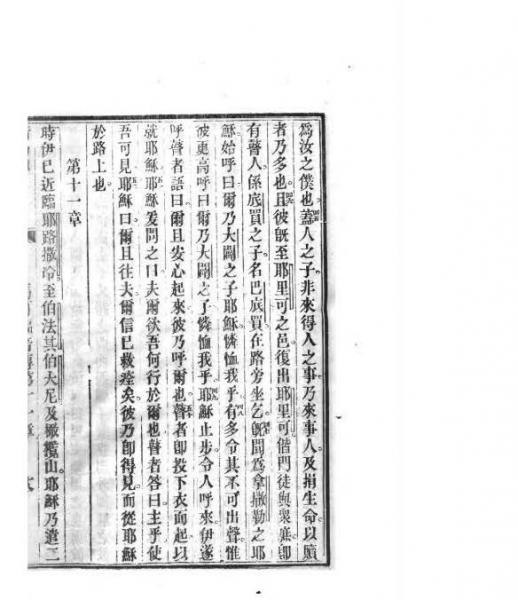 為汝之僕也。蓋人之子非來得人之事乃來事人及捐生命以贖
者乃多也。且彼既至耶里可之邑復出耶里可偕門徒與衆庶即
有瞽人係底買之子名巴底買在路旁坐乞。既聞為拿撒勒之耶
穌始呼曰爾乃大闢之子耶穌憐恤我乎。有多令其不可出聲惟
彼更高呼曰爾乃大闢之子憐恤我乎。耶穌止步令人呼來伊遂
呼瞽者語曰爾且安心起來彼乃呼爾也。瞽者即投下衣而起以
就耶穌。耶穌爰問之曰夫爾欲吾何行於爾也瞽者答曰主乎使
吾可見。耶穌曰爾且往夫爾信已救痊矣。彼乃即得見而從耶穌
於路上也。
第十一章
時伊已近臨耶路撒冷至伯法其伯大尼及橄欖山。耶穌乃遣二